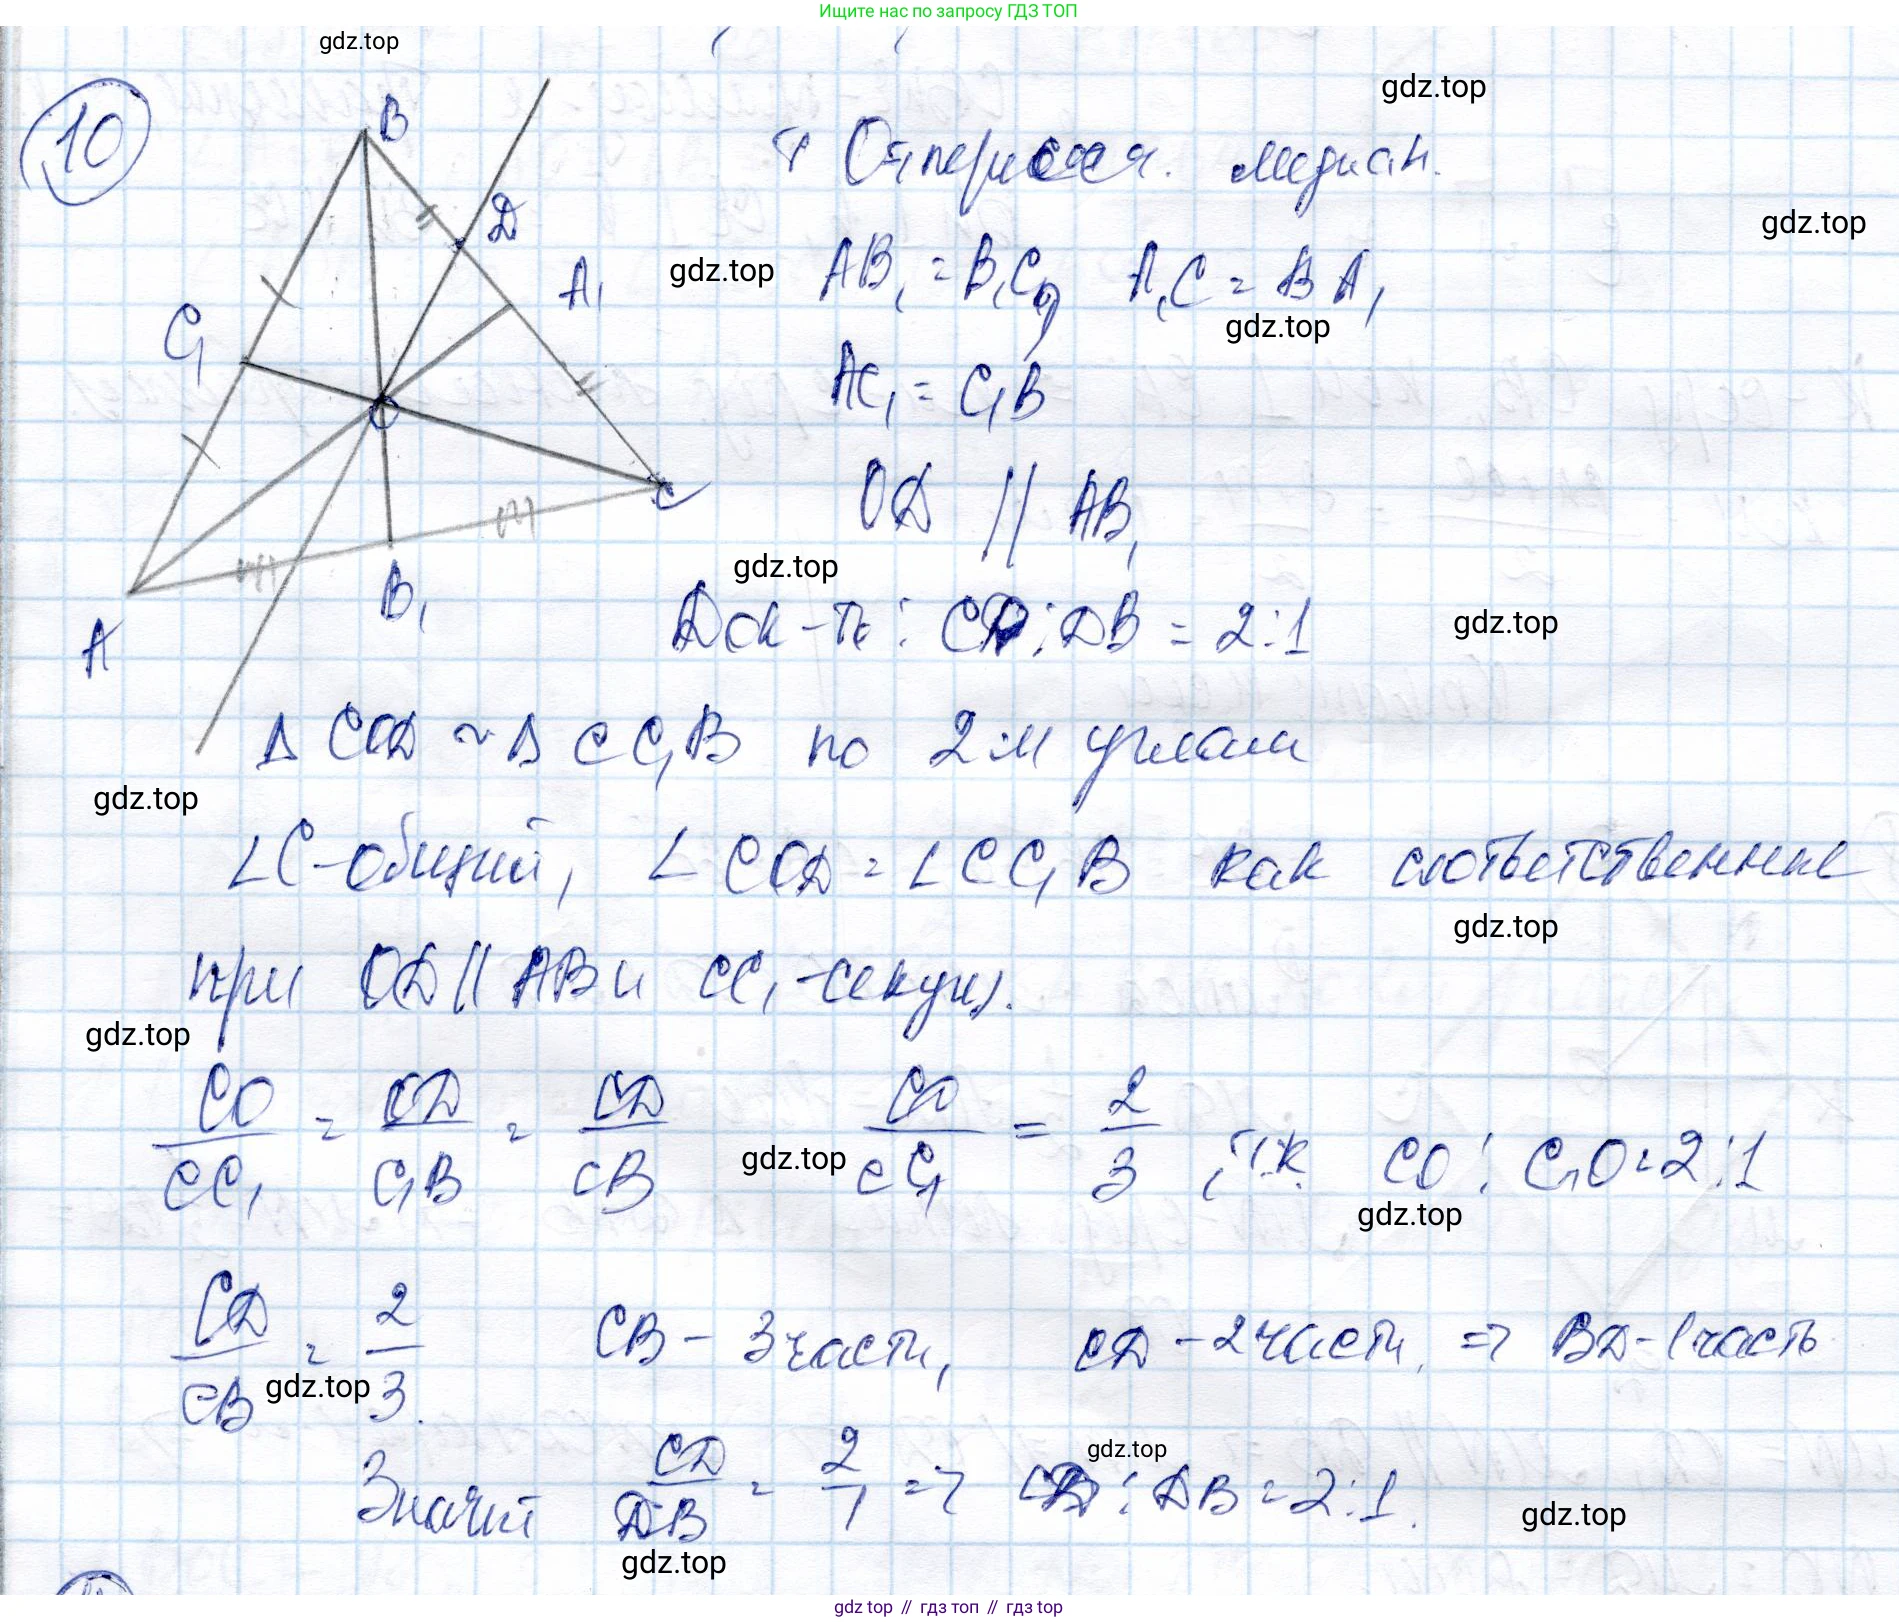 Ищите нас по запросу ГДЗ ТОП
gdz.top
gdz.top
10
B
т O пересеч. медиан.
D
gdz.top
A₁
gdz.top
AB₁ = B₁C, A₁C = BA₁
gdz.top
C₁
AC₁ = C₁B
O
C
OD || AB
gdz.top
B₁
A
Док-ть: CD : DB = 2:1
gdz.top
Δ COD ~ Δ CC₁B по 2-м углам
gdz.top
∠C-общий, ∠COD = ∠CC₁B как соответственные
gdz.top
при OD || AB и CC₁-секущ.
gdz.top
CO/CC₁ = OD/C₁B = CD/CB CO/CC₁ = 2/3, т.к. CO : C₁O = 2:1
gdz.top
gdz.top
CD/CB = 2/3. CB - 3 части, CD - 2 части, => BD - 1 часть
gdz.top
gdz.top
Значит CD/DB = 2/1 => CD : DB = 2:1.
gdz.top
gdz.top
gdz top // гдз топ // гдз top